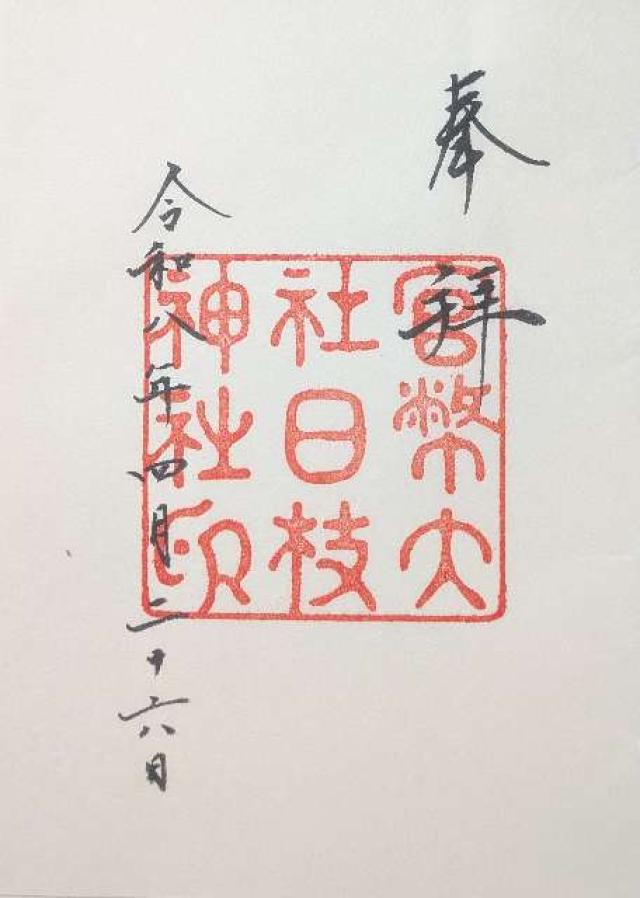 奉拝
官幣大
社日枝
神社印
令和八年四月二十六日